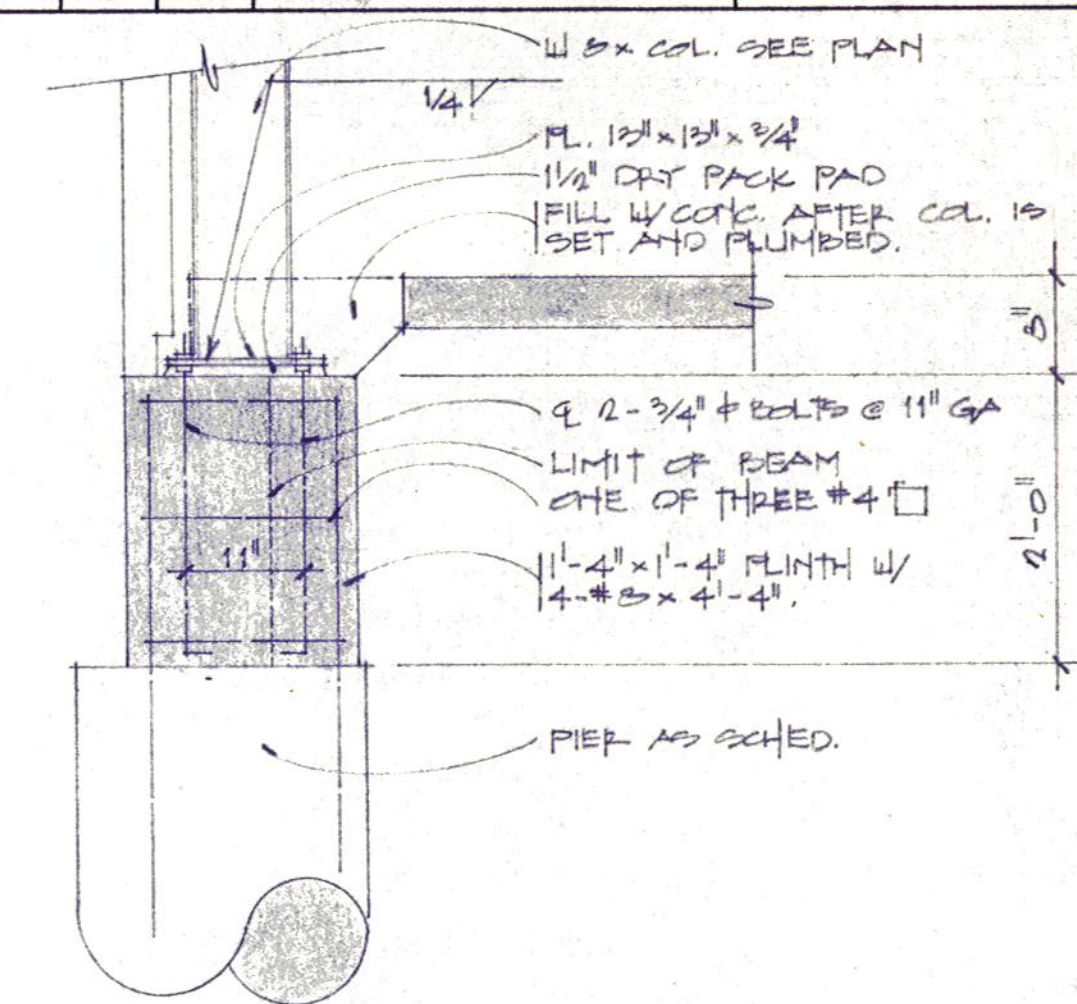 W 8x COL. SEE PLAN
1/4
PL. 13" x 13" x 3/4"
1 1/2" DRY PACK PAD
FILL W/ CONC. AFTER COL. IS
SET AND PLUMBED.
8"
℄ 2-3/4" ϕ BOLTS @ 11" GA
LIMIT OF BEAM
ONE OF THREE #4 □
2'-0"
11"
1'-4" x 1'-4" PLINTH W/
4-#8 x 4'-4".
PIER AS SCHED.